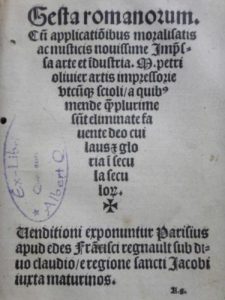 Gesta romanorum.
Cū applicatiōibus moralisatis
ac misticis nouissime Imp̄s-
sa arte et īdustria. M. petri
oliuier artis impressorie
vtcūqȝ scioli / a quibꝰ
mende qȝplurime
sūt eliminate fa
uente deo cui
laus ⁊ glo
ria ī secu
la secu
loꝝ.
✠
Uenditioni exponuntur Parisius
apud edes Frācisci regnault sub di-
uo claudio / e regione sancti Jacobi
iuxta maturinos.
Ex-Lib
Albert O